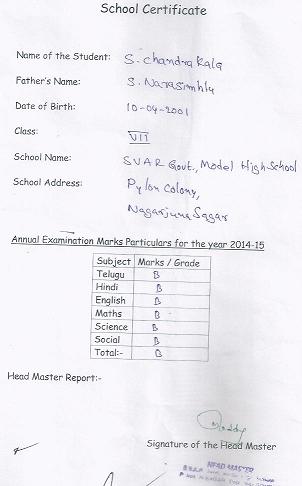 School Certificate
Name of the Student: S. chandra Kala
Father's Name: S. Narasimhlu
Date of Birth: 10-04-2001
Class: VII
School Name: SVAR Govt., Model High School
School Address: Pylon Colony,
Nagarjuna Sagar
Annual Examination Marks Particulars for the year 2014-15
Subject Marks / Grade
Telugu B
Hindi B
English B
Maths B
Science B
Social B
Total:- B
Head Master Report:-
Signature of the Head Master
HEAD MASTER